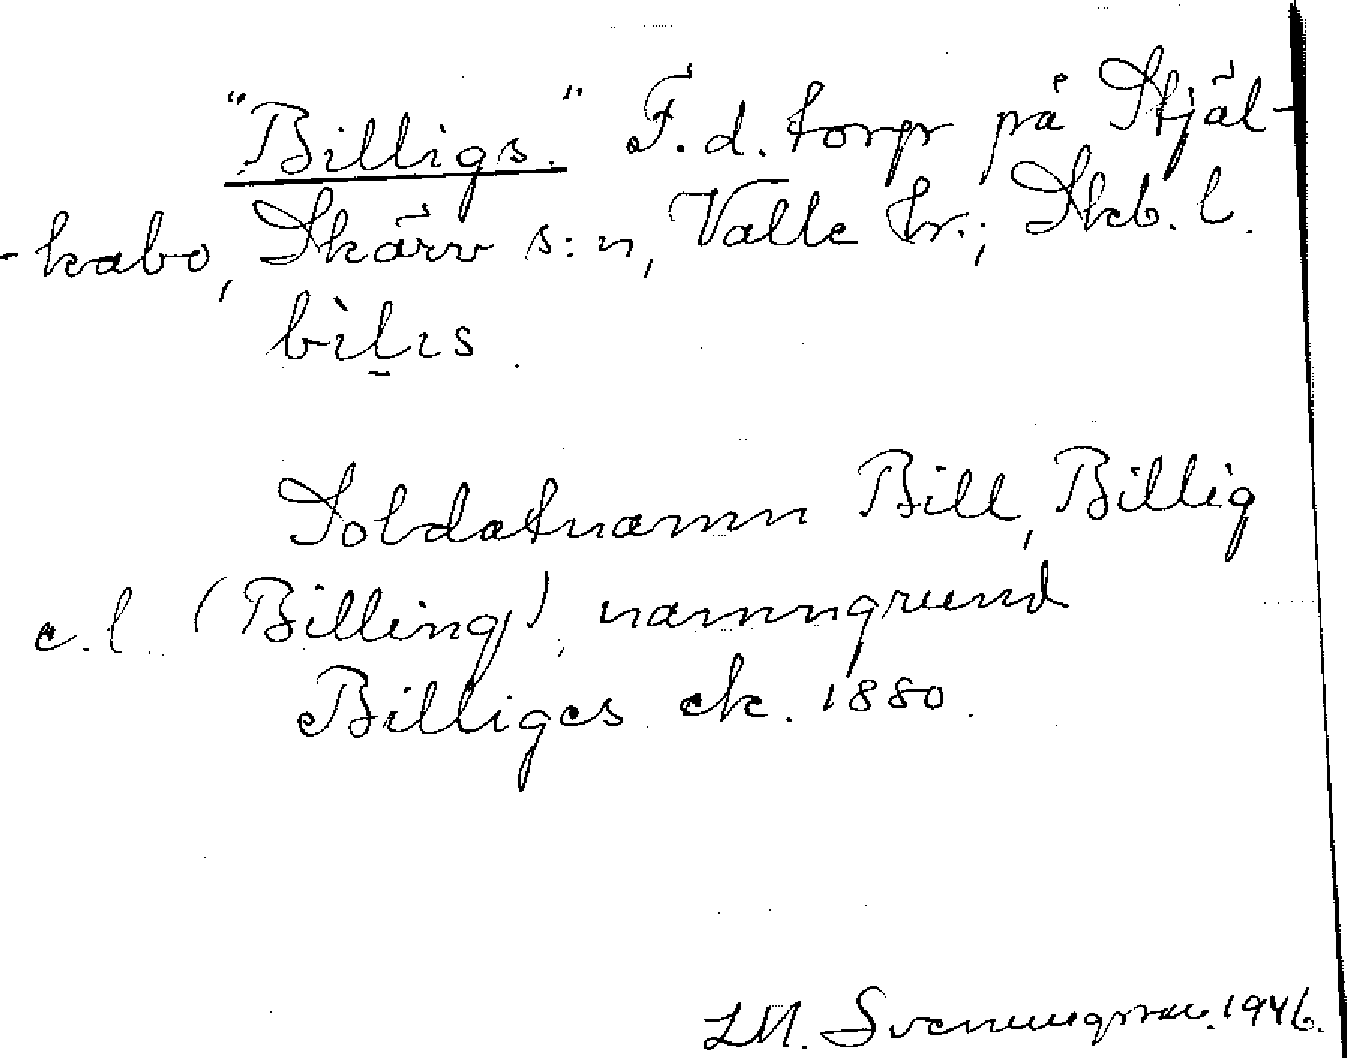 "Billigs." F.d. torp på Stjäl-
-kabo, Skärv s:n, Valle hr.; Skb. l.
bìḷıs.
Soldatnamn Bill, Billig
e.l. (Billing), namngrund
Billiges ek. 1880.
LM. Svenungsson. 1946.